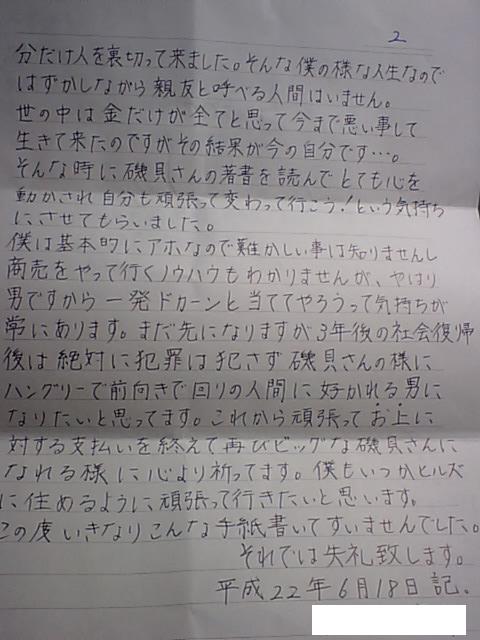 2
分だけ人を裏切って来ました。そんな僕の様な人生なので
はずかしながら親友と呼べる人間はいません。
世の中は金だけが全てと思って今まで悪い事して
生きて来たのですがその結果が今の自分です…。
そんな時に磯貝さんの著書を読んでとても心を
動かされ自分も頑張って変わって行こう!という気持ち
にさせてもらいました。
僕は基本的にアホなので難かしい事は知りませんし
商売をやって行くノウハウもわかりませんが、やはり
男ですから一発ドカーンと当ててやろうって気持ちが
常にあります。まだ先になりますが3年後の社会復帰
後は絶対に犯罪は犯さず磯貝さんの様に
ハングリーで前向きで回りの人間に好かれる男に
なりたいと思ってます。これから頑張ってお上に
対する支払いを終えて再びビッグな磯貝さんに
なれる様に心より祈ってます。僕もいつかヒルズ
に住めるように頑張って行きたいと思います。
この度いきなりこんな手紙書いてすいませんでした。
それでは失礼致します。
平成22年6月18日記.